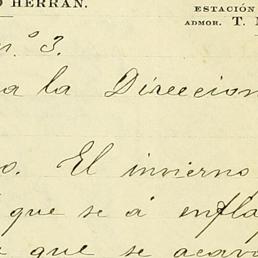 O HERRAN.
ESTACIÓN
ADMOR. T.
n.º 3.
a la Direccion
o. El invierno
que se á enfla
que se acava